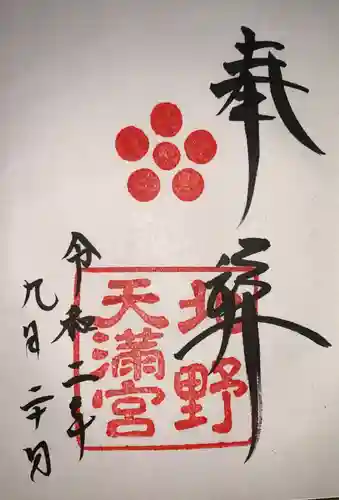 奉拝
北野
天満宮
令和二年
九月二十日